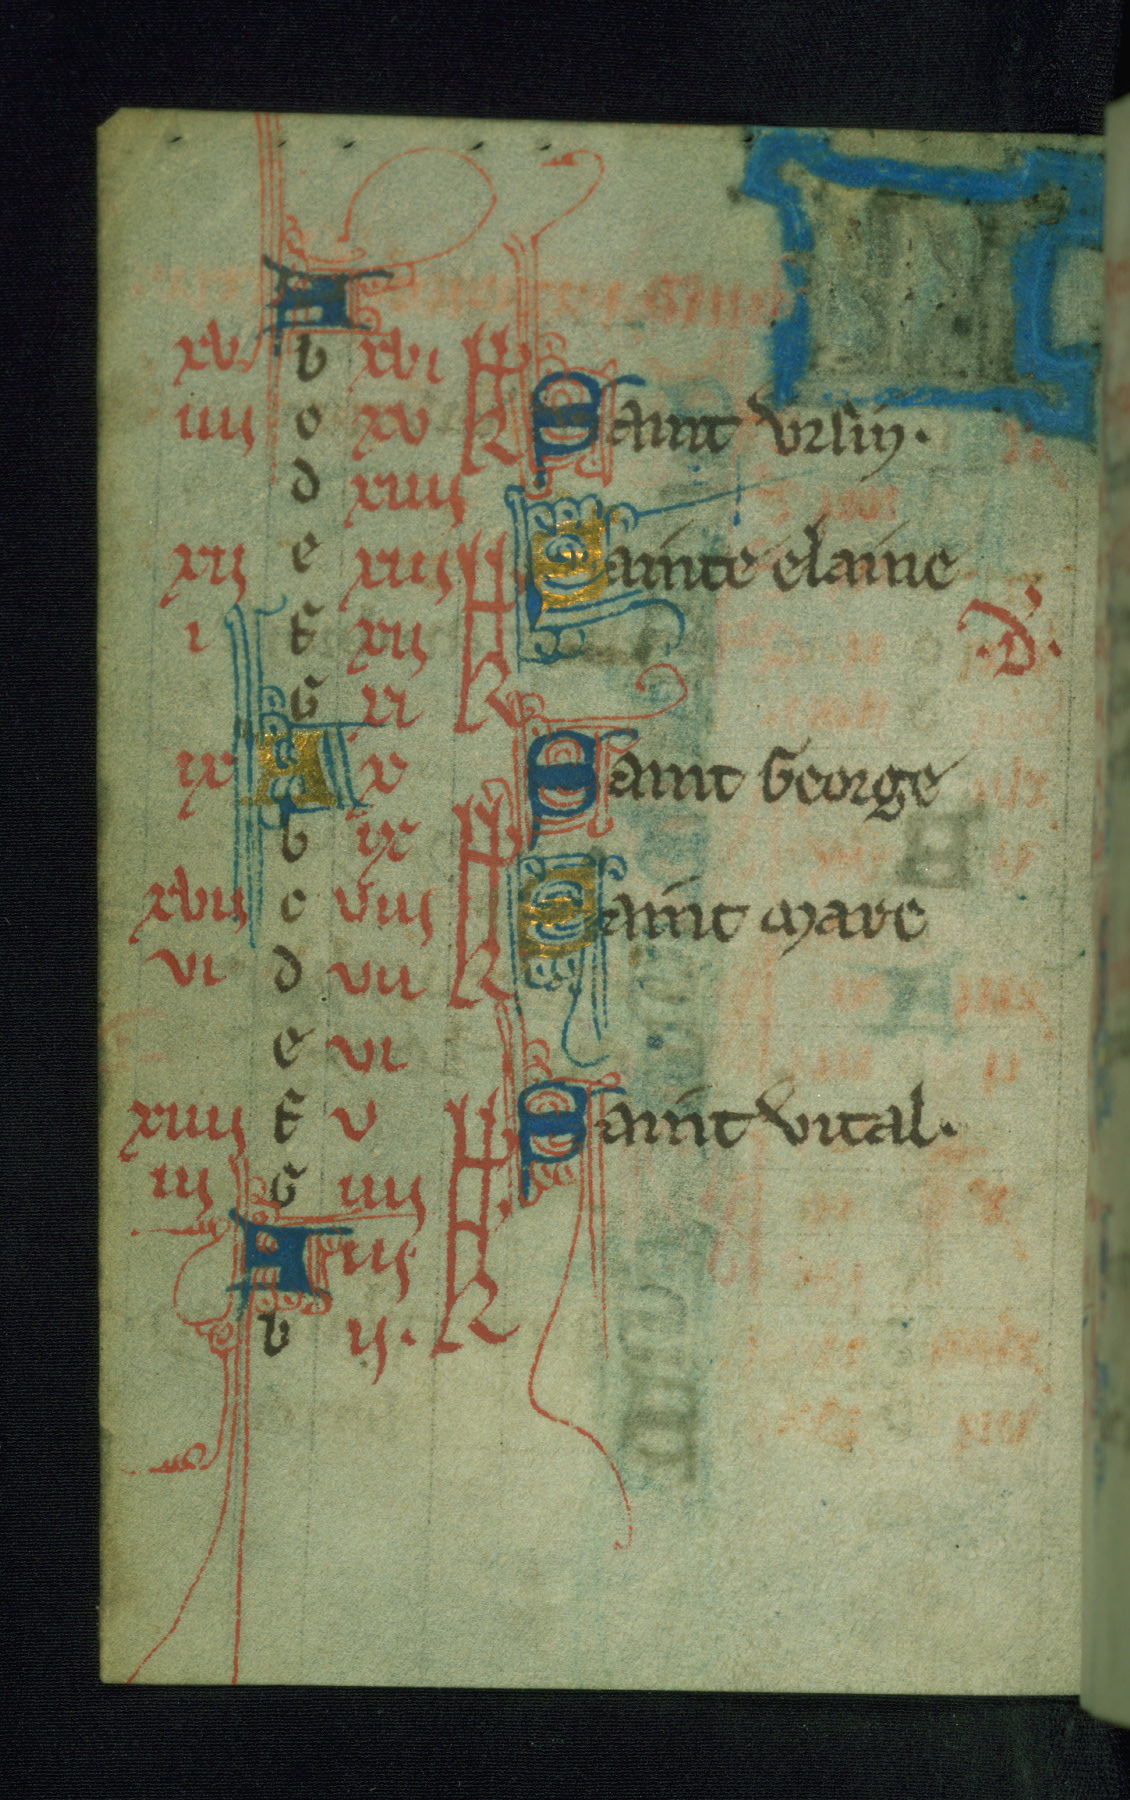 A
xv b xvi kl
iiij c xv Saint vrsin.
d xiiij
xij e xiij kl Sainte elaine
i f xij .D.
G xi kl
ix A x Saint George
b ix kl
xvij c viij Saint marc
vi d vii kl
e vi
xiiij f v kl Saint vital.
iij G iiij
A iij kl
b ij.